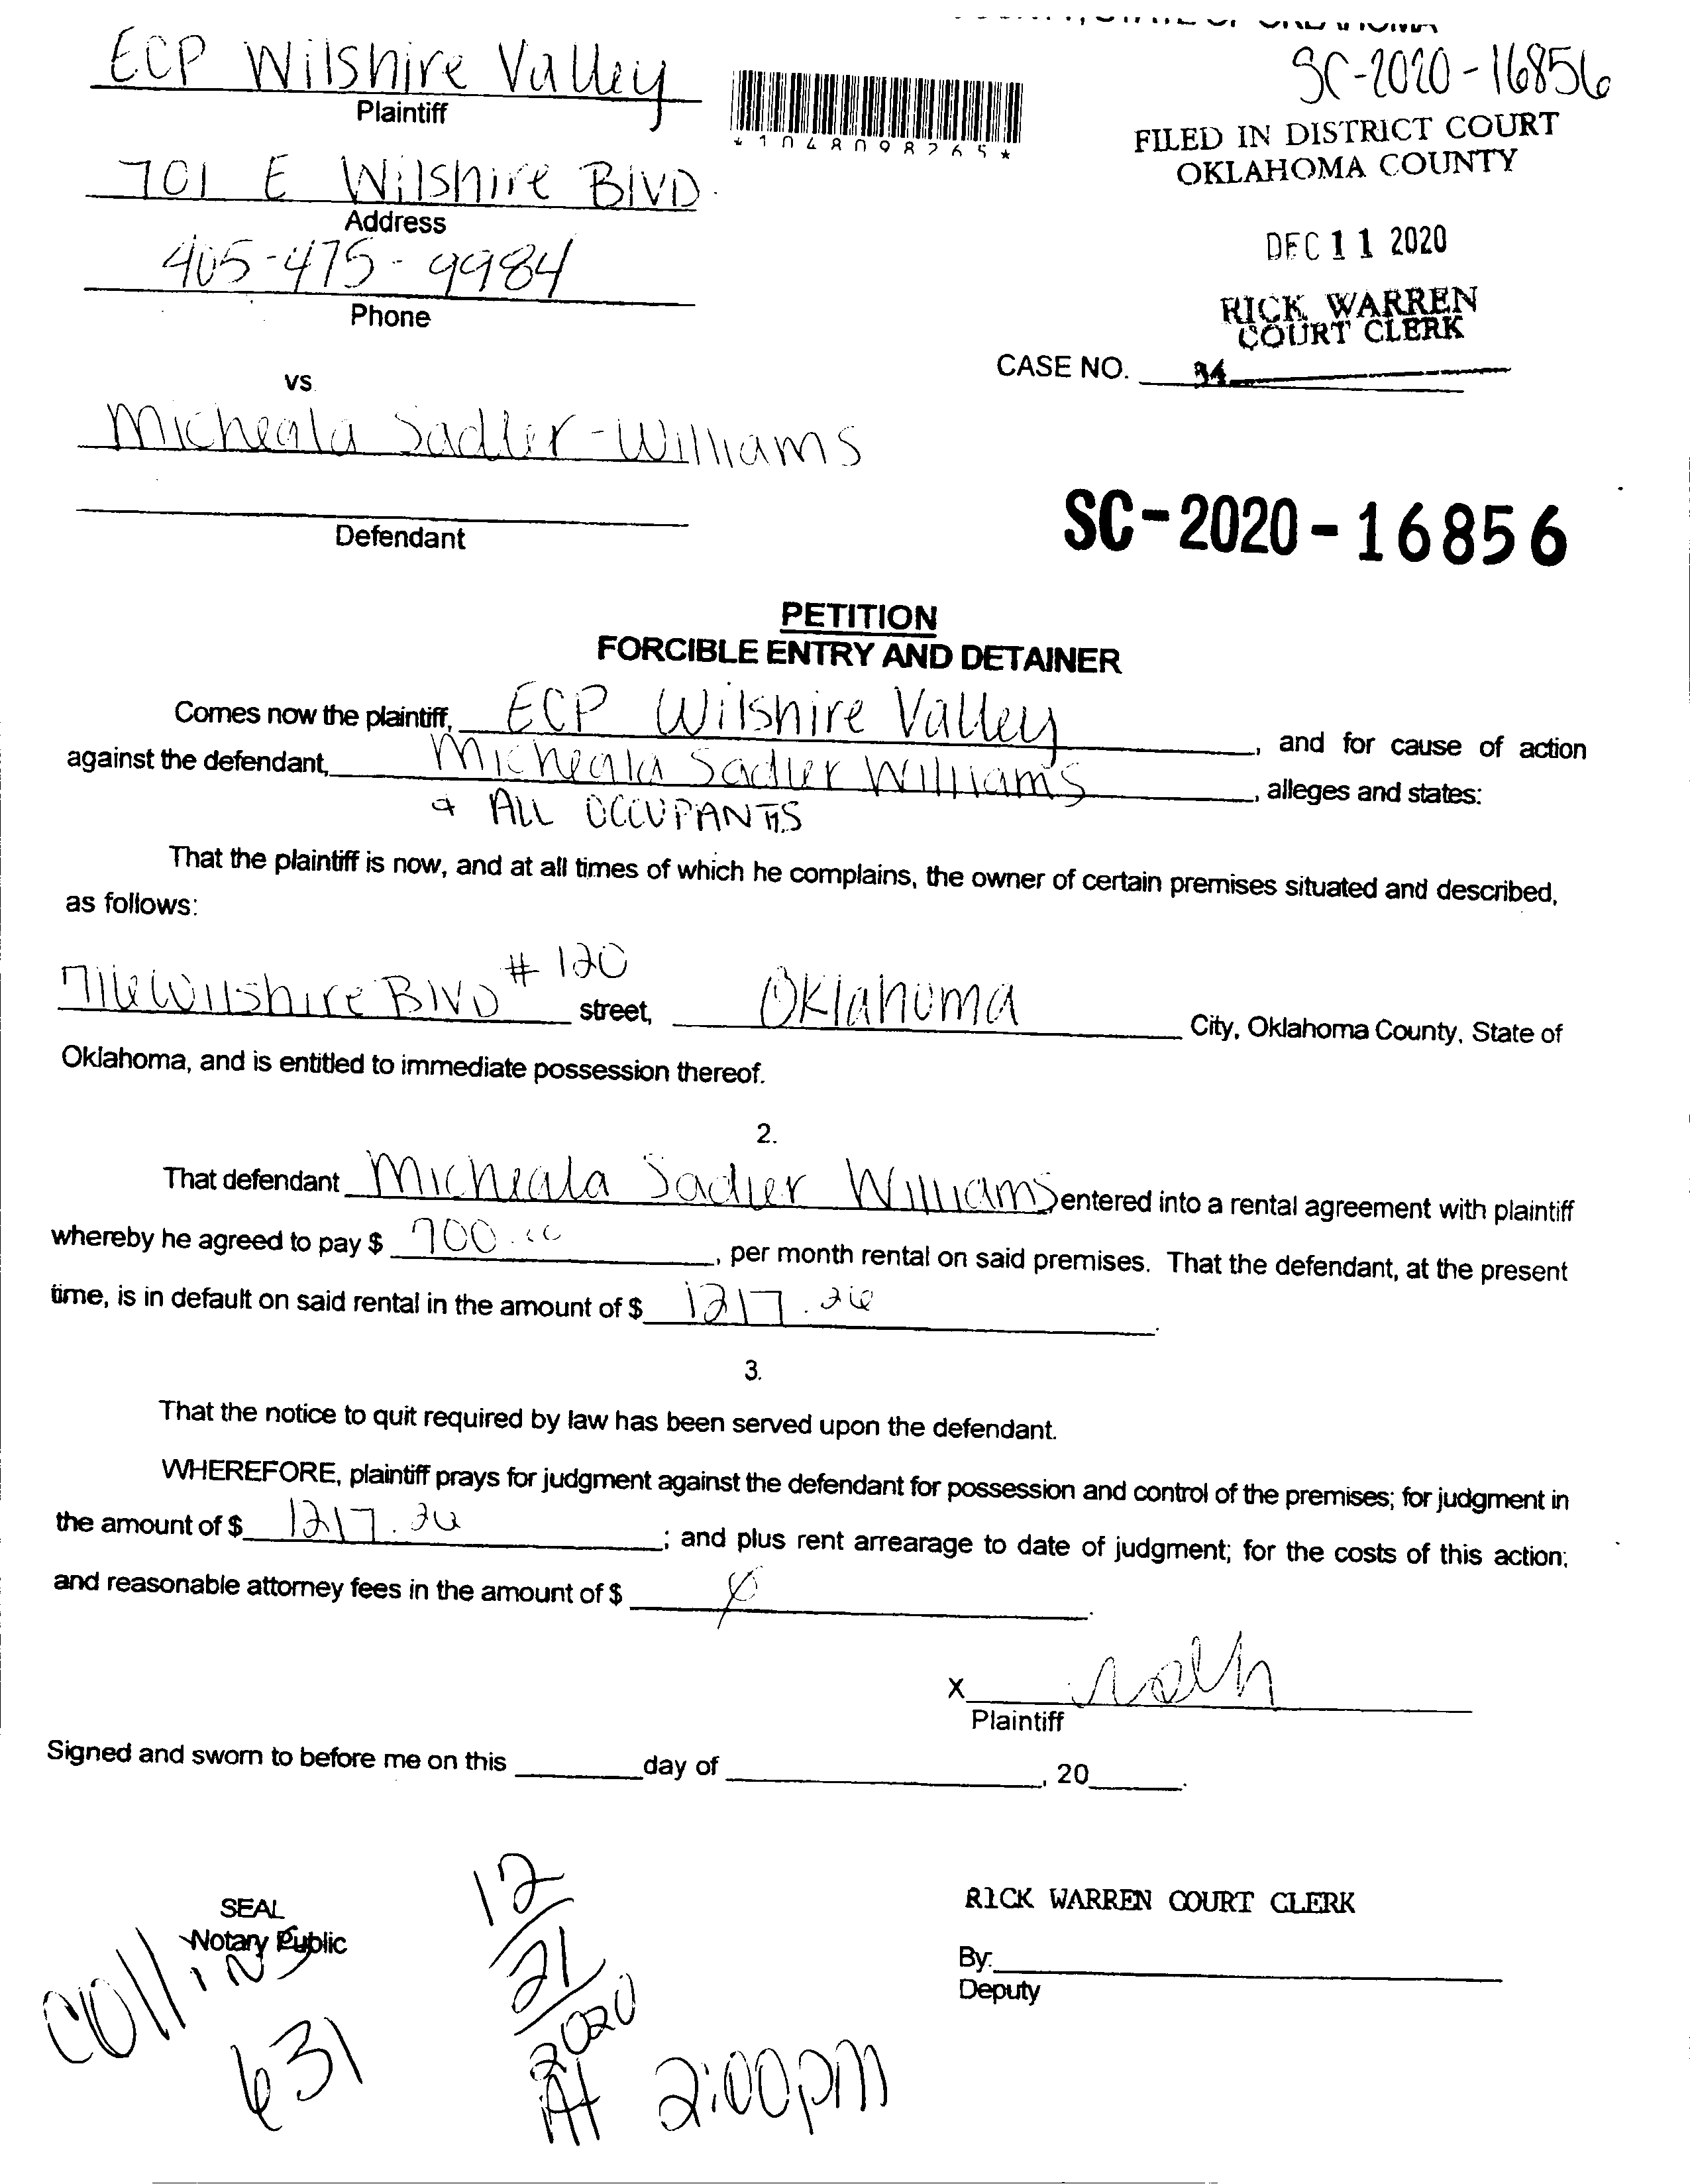 ECP Wilshire Valley
Plaintiff
701 E Wilshire BLVD.
Address
405-475-9984
Phone
vs.
Micheala Sadler-Williams
Defendant
*1048098265*
SC-2020-16856
FILED IN DISTRICT COURT
OKLAHOMA COUNTY
DEC 11 2020
RICK WARREN
COURT CLERK
CASE NO.
SC-2020-16856
PETITION
FORCIBLE ENTRY AND DETAINER
Comes now the plaintiff, ECP Wilshire Valley, and for cause of action
against the defendant, Micheala Sadler Williams, alleges and states:
& ALL OCCUPANTS
That the plaintiff is now, and at all times of which he complains, the owner of certain premises situated and described,
as follows:
Wilshire BLVD # 120 street, Oklahoma City, Oklahoma County, State of
Oklahoma, and is entitled to immediate possession thereof.
2.
That defendant Micheala Sadler Williams entered into a rental agreement with plaintiff
whereby he agreed to pay $ 700.00, per month rental on said premises. That the defendant, at the present
time, is in default on said rental in the amount of $ 1217.26.
3.
That the notice to quit required by law has been served upon the defendant.
WHEREFORE, plaintiff prays for judgment against the defendant for possession and control of the premises; for judgment in
the amount of $ 1217.26; and plus rent arrearage to date of judgment; for the costs of this action;
and reasonable attorney fees in the amount of $
X
Plaintiff
Signed and sworn to before me on this day of , 20 .
SEAL
Notary Public
Collins
631
12/21/2020
At 2:00pm
RICK WARREN COURT CLERK
By:
Deputy